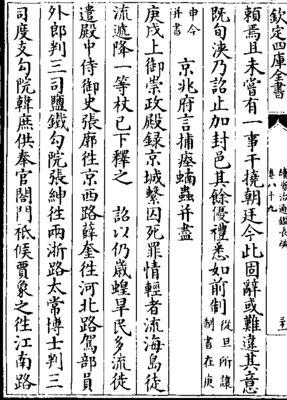 欽定四庫全書
續資治通鑑長編
卷八十九
二十一
賴焉且未嘗有一事干撓朝廷今此固辭或難違其意
既旬浹乃詔止加封邑其餘優禮悉如前制從旦所讓
制書在庚
申今
并書
京兆府言捕蝗蝻蟲并盡
庚戌上御崇政殿録京城繫囚死罪情輕者流海島徒
流遞降一等杖已下釋之
詔以仍歲蝗旱民多流徙
遣殿中侍御史張廓往京西路薛奎往河北路駕部員
外郎判三司鹽鐵勾院張紳往兩浙路太常博士判三
司度支勾院韓庶供奉官閤門祗候賈象之往江南路